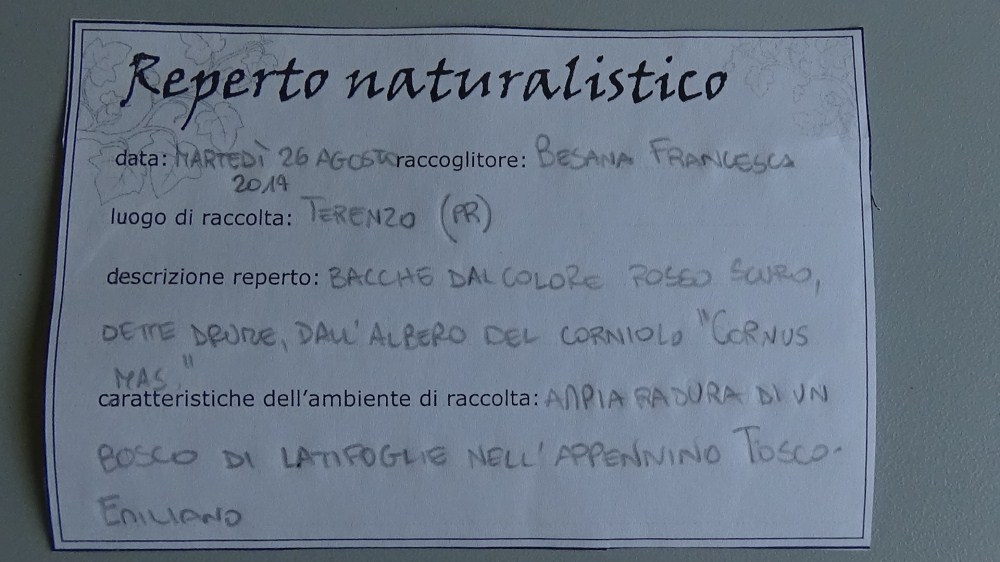 Reperto naturalistico
data: MARTEDÌ 26 AGOSTO raccoglitore: BESANA FRANCESCA
2014
luogo di raccolta: TERENZO (PR)
descrizione reperto: BACCHE DAL COLORE ROSSO SCURO,
DETTE DRUPE, DALL'ALBERO DEL CORNIOLO "CORNUS
MAS."
caratteristiche dell'ambiente di raccolta: AMPIA RADURA DI UN
BOSCO DI LATIFOGLIE NELL'APPENNINO TOSCO-
EMILIANO